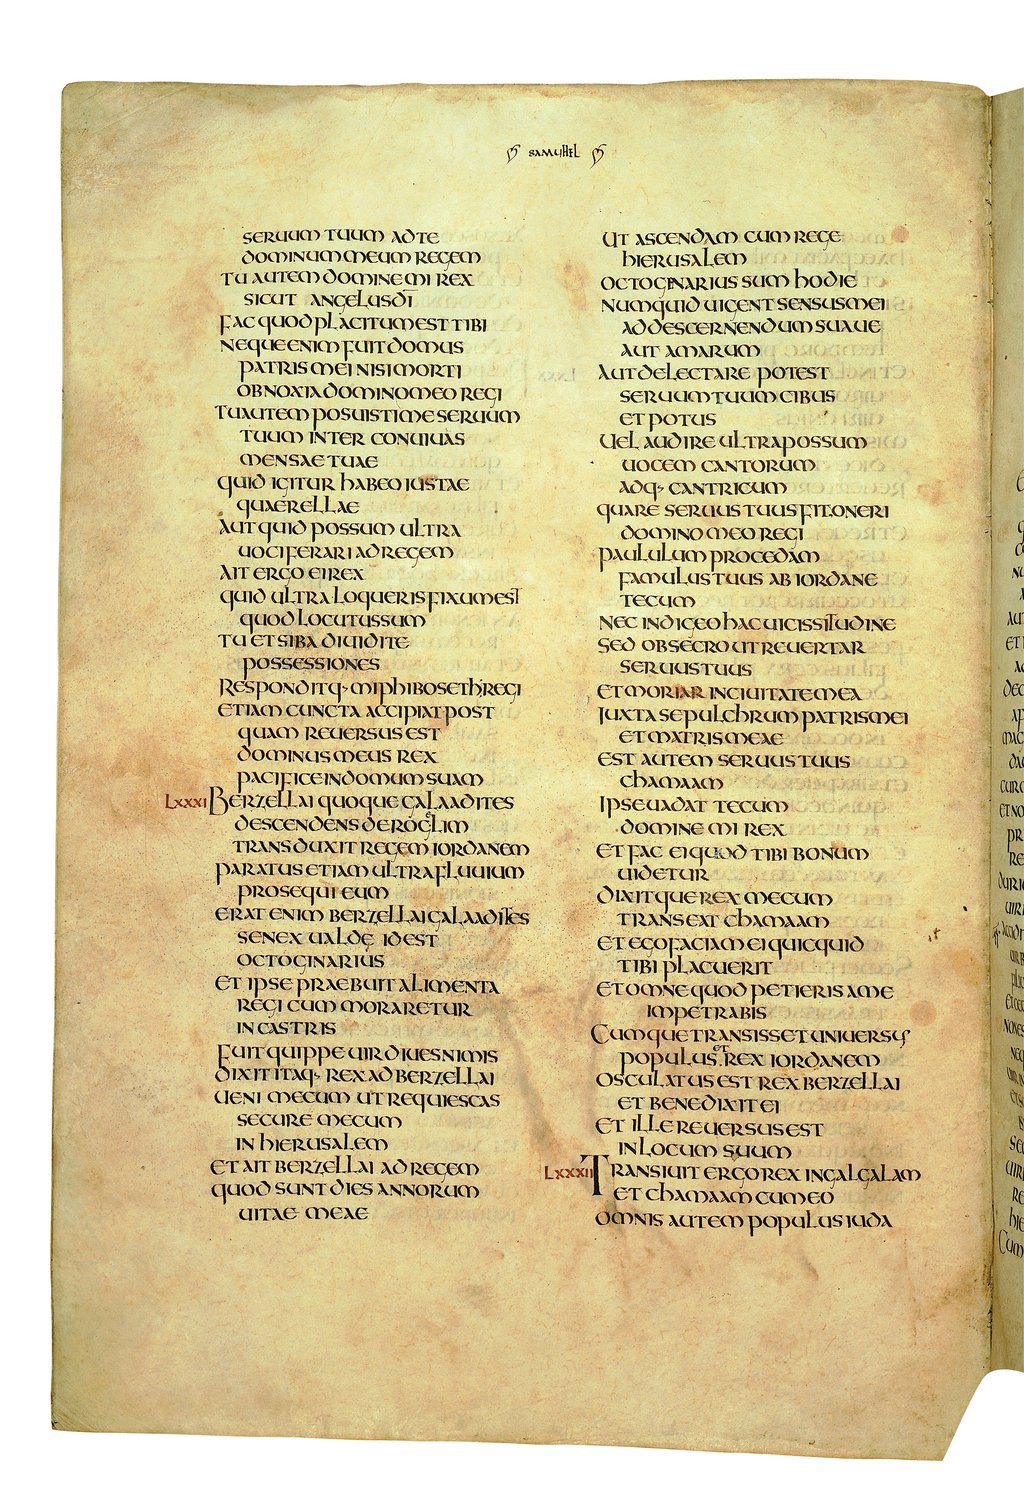 SAMUHEL
SERUUM TUUM AD TE
DOMINUM MEUM REGEM
TU AUTEM DOMINE MI REX
SICUT ANGELUS DI
FAC QUOD PLACITUM EST TIBI
NEQUE ENIM FUIT DOMUS
PATRIS MEI NISI MORTI
OBNOXIA DOMINO MEO REGI
TU AUTEM POSUISTI ME SERUUM
TUUM INTER CONUIUAS
MENSAE TUAE
QUID IGITUR HABEO IUSTAE
QUAERELLAE
AUT QUID POSSUM ULTRA
UOCIFERARI AD REGEM
AIT ERGO EI REX
QUID ULTRA LOQUERIS FIXUM EST
QUOD LOCUTUS SUM
TU ET SIBA DIUIDITE
POSSESSIONES
RESPONDITQ· MIPHIBOSETH REGI
ETIAM CUNCTA ACCIPIAT POST
QUAM REUERSUS EST
DOMINUS MEUS REX
PACIFICE IN DOMUM SUAM
LXXXI BERZELLAI QUOQUE GALAADITES
DESCENDENS DE ROGELIM
TRANSDUXIT REGEM IORDANEM
PARATUS ETIAM ULTRA FLUUIUM
PROSEQUI EUM
ERAT ENIM BERZELLAI GALAADITES
SENEX UALDE ID EST
OCTOGINARIUS
ET IPSE PRAEBUIT ALIMENTA
REGI CUM MORARETUR
IN CASTRIS
FUIT QUIPPE UIR DIUES NIMIS
DIXIT ITAQ· REX AD BERZELLAI
UENI MECUM UT REQUIESCAS
SECURE MECUM
IN HIERUSALEM
ET AIT BERZELLAI AD REGEM
QUOD SUNT DIES ANNORUM
UITAE MEAE
UT ASCENDAM CUM REGE
HIERUSALEM
OCTOGINARIUS SUM HODIE
NUMQUID UIGENT SENSUS MEI
AD DESCERNENDUM SUAUE
AUT AMARUM
AUT DELECTARE POTEST
SERUUM TUUM CIBUS
ET POTUS
UEL AUDIRE ULTRA POSSUM
UOCEM CANTORUM
ADQ· CANTRICUM
QUARE SERUUS TUUS FIT ONERI
DOMINO MEO REGI
PAULULUM PROCEDAM
FAMULUS TUUS AB IORDANE
TECUM
NEC INDIGEO HAC UICISSITUDINE
SED OBSECRO UT REUERTAR
SERUUS TUUS
ET MORIAR IN CIUITATE MEA
IUXTA SEPULCHRUM PATRIS MEI
ET MATRIS MEAE
EST AUTEM SERUUS TUUS
CHAMAAM
IPSE UADAT TECUM
DOMINE MI REX
ET FAC EI QUOD TIBI BONUM
UIDETUR
DIXITQUE REX MECUM
TRANSEAT CHAMAAM
ET EGO FACIAM EI QUICQUID
TIBI PLACUERIT
ET OMNE QUOD PETIERIS A ME
IMPETRABIS
CUMQUE TRANSISSET UNIUERSUS
POPULUS ET REX IORDANEM
OSCULATUS EST REX BERZELLAI
ET BENEDIXIT EI
ET ILLE REUERSUS EST
IN LOCUM SUUM
LXXXII TRANSIUIT ERGO REX IN GALGALAM
ET CHAMAAM CUM EO
OMNIS AUTEM POPULUS IUDA